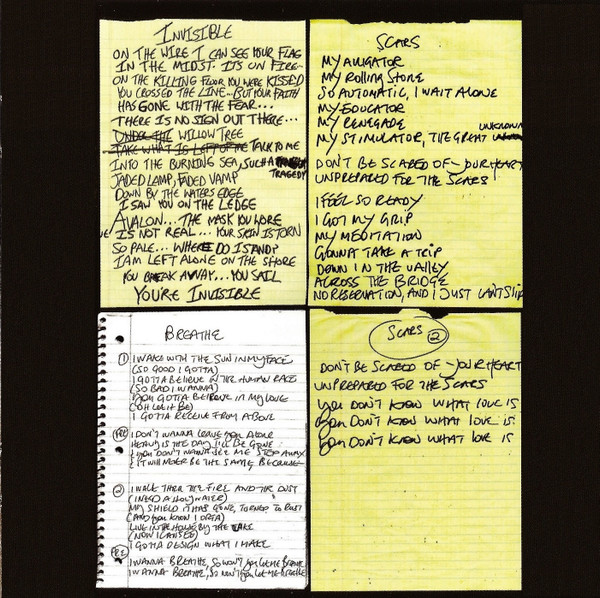 INVISIBLE
ON THE WIRE I CAN SEE YOUR FLAG
IN THE MIDST. IT'S ON FIRE-
ON THE KILLING FLOOR YOU WERE KISSED
YOU CROSSED THE LINE... BUT YOUR FAITH
HAS GONE WITH THE FEAR...
THERE IS NO SIGN OUT THERE...
UNDER THE WILLOW TREE
TAKE WHAT IS LEFT OF ME TALK TO ME
INTO THE BURNING SEA, SUCH A
TRAGEDY
JADED LAMP, FADED VAMP
DOWN BY THE WATERS EDGE
I SAW YOU ON THE LEDGE
AVALON... THE MASK YOU WORE
IS NOT REAL... YOUR SKIN IS TORN
SO PALE... WHERE DO I STAND?
I AM LEFT ALONE ON THE SHORE
YOU BREAK AWAY... YOU SAIL
YOU'RE INVISIBLE
SCARS
MY ALLIGATOR
MY ROLLING STONE
SO AUTOMATIC, I WAIT ALONE
MY EDUCATOR
MY RENEGADE
MY STIMULATOR, THE GREAT UNKNOWN
DON'T BE SCARED OF - YOUR HEART
UNPREPARED FOR THE SCARS
I FEEL SO READY
I GOT MY GRIP
MY MEDITATION
GONNA TAKE A TRIP
DOWN IN THE VALLEY
ACROSS THE BRIDGE
NO RESERVATION, AND I JUST CAN'T SLIP
BREATHE
① I WAKE WITH THE SUN IN MY FACE
(SO GOOD I GOTTA)
I GOTTA BELIEVE IN THE HUMAN RACE
(SO BAD I WANNA)
YOU GOTTA BELIEVE IN MY LOVE
(OH LET IT BE)
I GOTTA RECEIVE FROM ABOVE
PRE I DON'T WANNA LEAVE YOU ALONE
HEAVY IS THE DAY I'LL BE GONE
YOU DON'T WANNA SEE ME STOP AWAY
& IT WILL NEVER BE THE SAME BECAUSE
② I WALK THRU THE FIRE AND THE DUST
(I NEED A HOLY WATER)
MY SHIELD IT HAS GONE, TURNED TO RUST
(AND YOU KNOW I)
LIVE IN THE HOUSE BY THE LAKE
(NOW I)
I GOTTA DESIGN WHAT I MAKE
PRE
I WANNA BREATHE, SO WON'T YOU LET ME BREATHE
I WANNA BREATHE, SO WON'T YOU LET ME BREATHE
SCARS ②
DON'T BE SCARED OF - YOUR HEART
UNPREPARED FOR THE SCARS
YOU DON'T KNOW WHAT LOVE IS
YOU DON'T KNOW WHAT LOVE IS
YOU DON'T KNOW WHAT LOVE IS